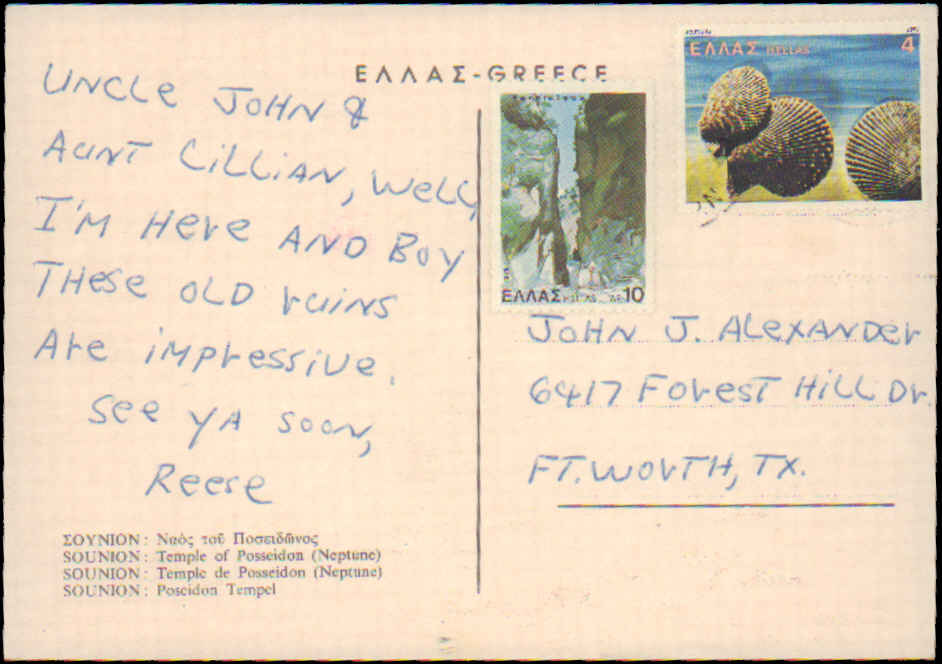 ΕΛΛΑΣ-GREECE
UNCLE JOHN &
AUNT LILLIAN, WELL,
I'M HERE AND BOY
THESE OLD RUINS
ARE IMPRESSIVE.
SEE YA SOON,
Reese
ΣΟΥΝΙΟΝ: Ναὸς τοῦ Ποσειδῶνος
SOUNION: Temple of Posseidon (Neptune)
SOUNION: Temple de Posseidon (Neptune)
SOUNION: Poseidon Tempel
ΕΛΛΑΣ HELLAS 4
ΕΛΛΑΣ HELLAS 10
JOHN J. ALEXANDER
6417 FOREST HILL DR.
FT. WORTH, TX.